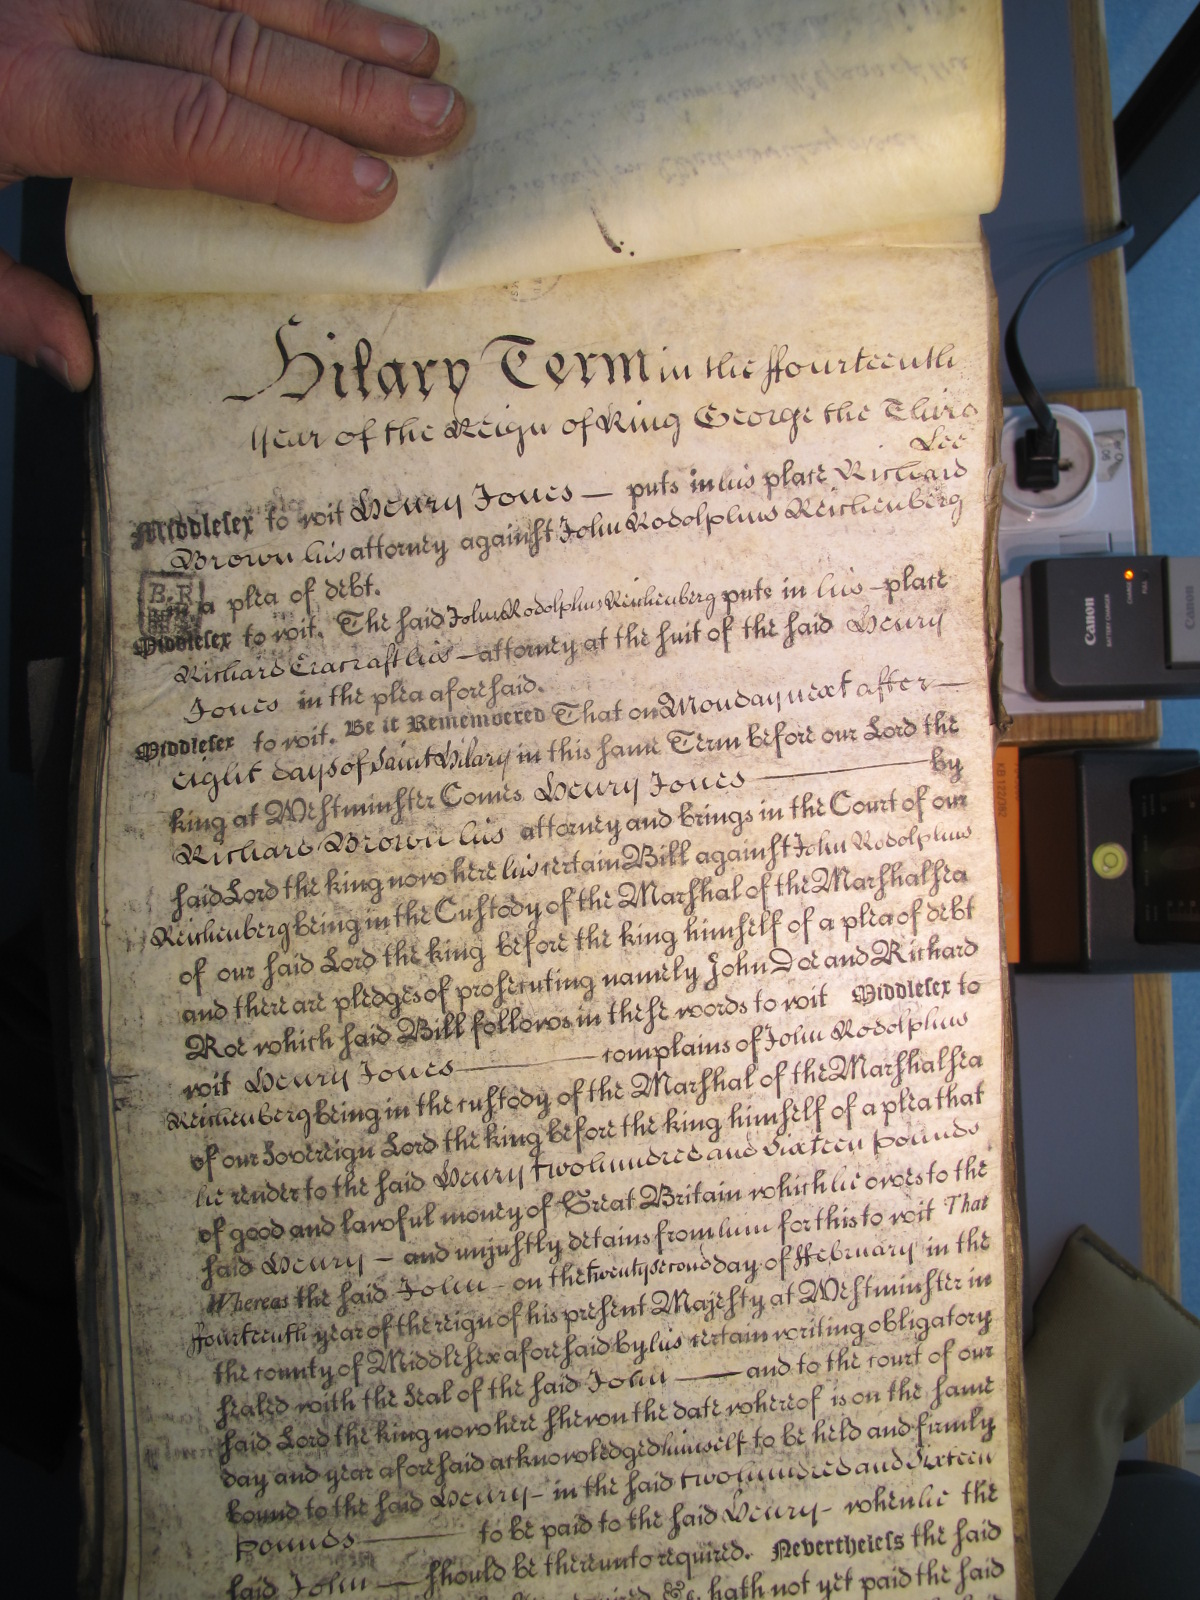 Hilary Term in the ffourteenth
Year of the Reign of King George the Third
Lee
Middlesex to wit Henry Jones — puts in his place Richard
Brown his attorney against John Rodolphus Reichenberg
in a plea of debt.
B.R
Middlesex to wit. The said John Rodolphus Reichenberg puts in his – place
Richard Cracraft his – attorney at the suit of the said Henry
Jones in the plea aforesaid.
Middlesex to wit. Be it Remembered That on Monday next after —
eight days of Saint Hilary in this same Term before our Lord the
king at Westminster Comes Henry Jones — by
Richard Brown his attorney and brings in the Court of our
said Lord the king now here his certain Bill against John Rodolphus
Reichenberg being in the Custody of the Marshal of the Marshalsea
of our said Lord the king before the king himself of a plea of debt
and there are pledges of prosecuting namely John Doe and Richard
Roe which said Bill follows in these words to wit Middlesex to
wit Henry Jones — complains of John Rodolphus
Reichenberg being in the custody of the Marshal of the Marshalsea
of our Sovereign Lord the king before the king himself of a plea that
he render to the said Henry two hundred and Sixteen pounds
of good and lawful money of Great Britain which he owes to the
said Henry – and unjustly detains from him for this to wit That
Whereas the said John – on the twenty second day of ffebruary in the
ffourteenth year of the reign of his present Majesty at Westminster in
the county of Middlesex aforesaid by his certain writing obligatory
sealed with the Seal of the said John — and to the court of our
said Lord the king now here shewn the date whereof is on the same
day and year aforesaid acknowledged himself to be held and firmly
bound to the said Henry – in the said two hundred and Sixteen
pounds — to be paid to the said Henry – when he the
said John — should be thereunto required. Nevertheless the said
&c hath not yet paid the said
Canon
BATTERY CHARGER
CHARGE
FULL
Canon